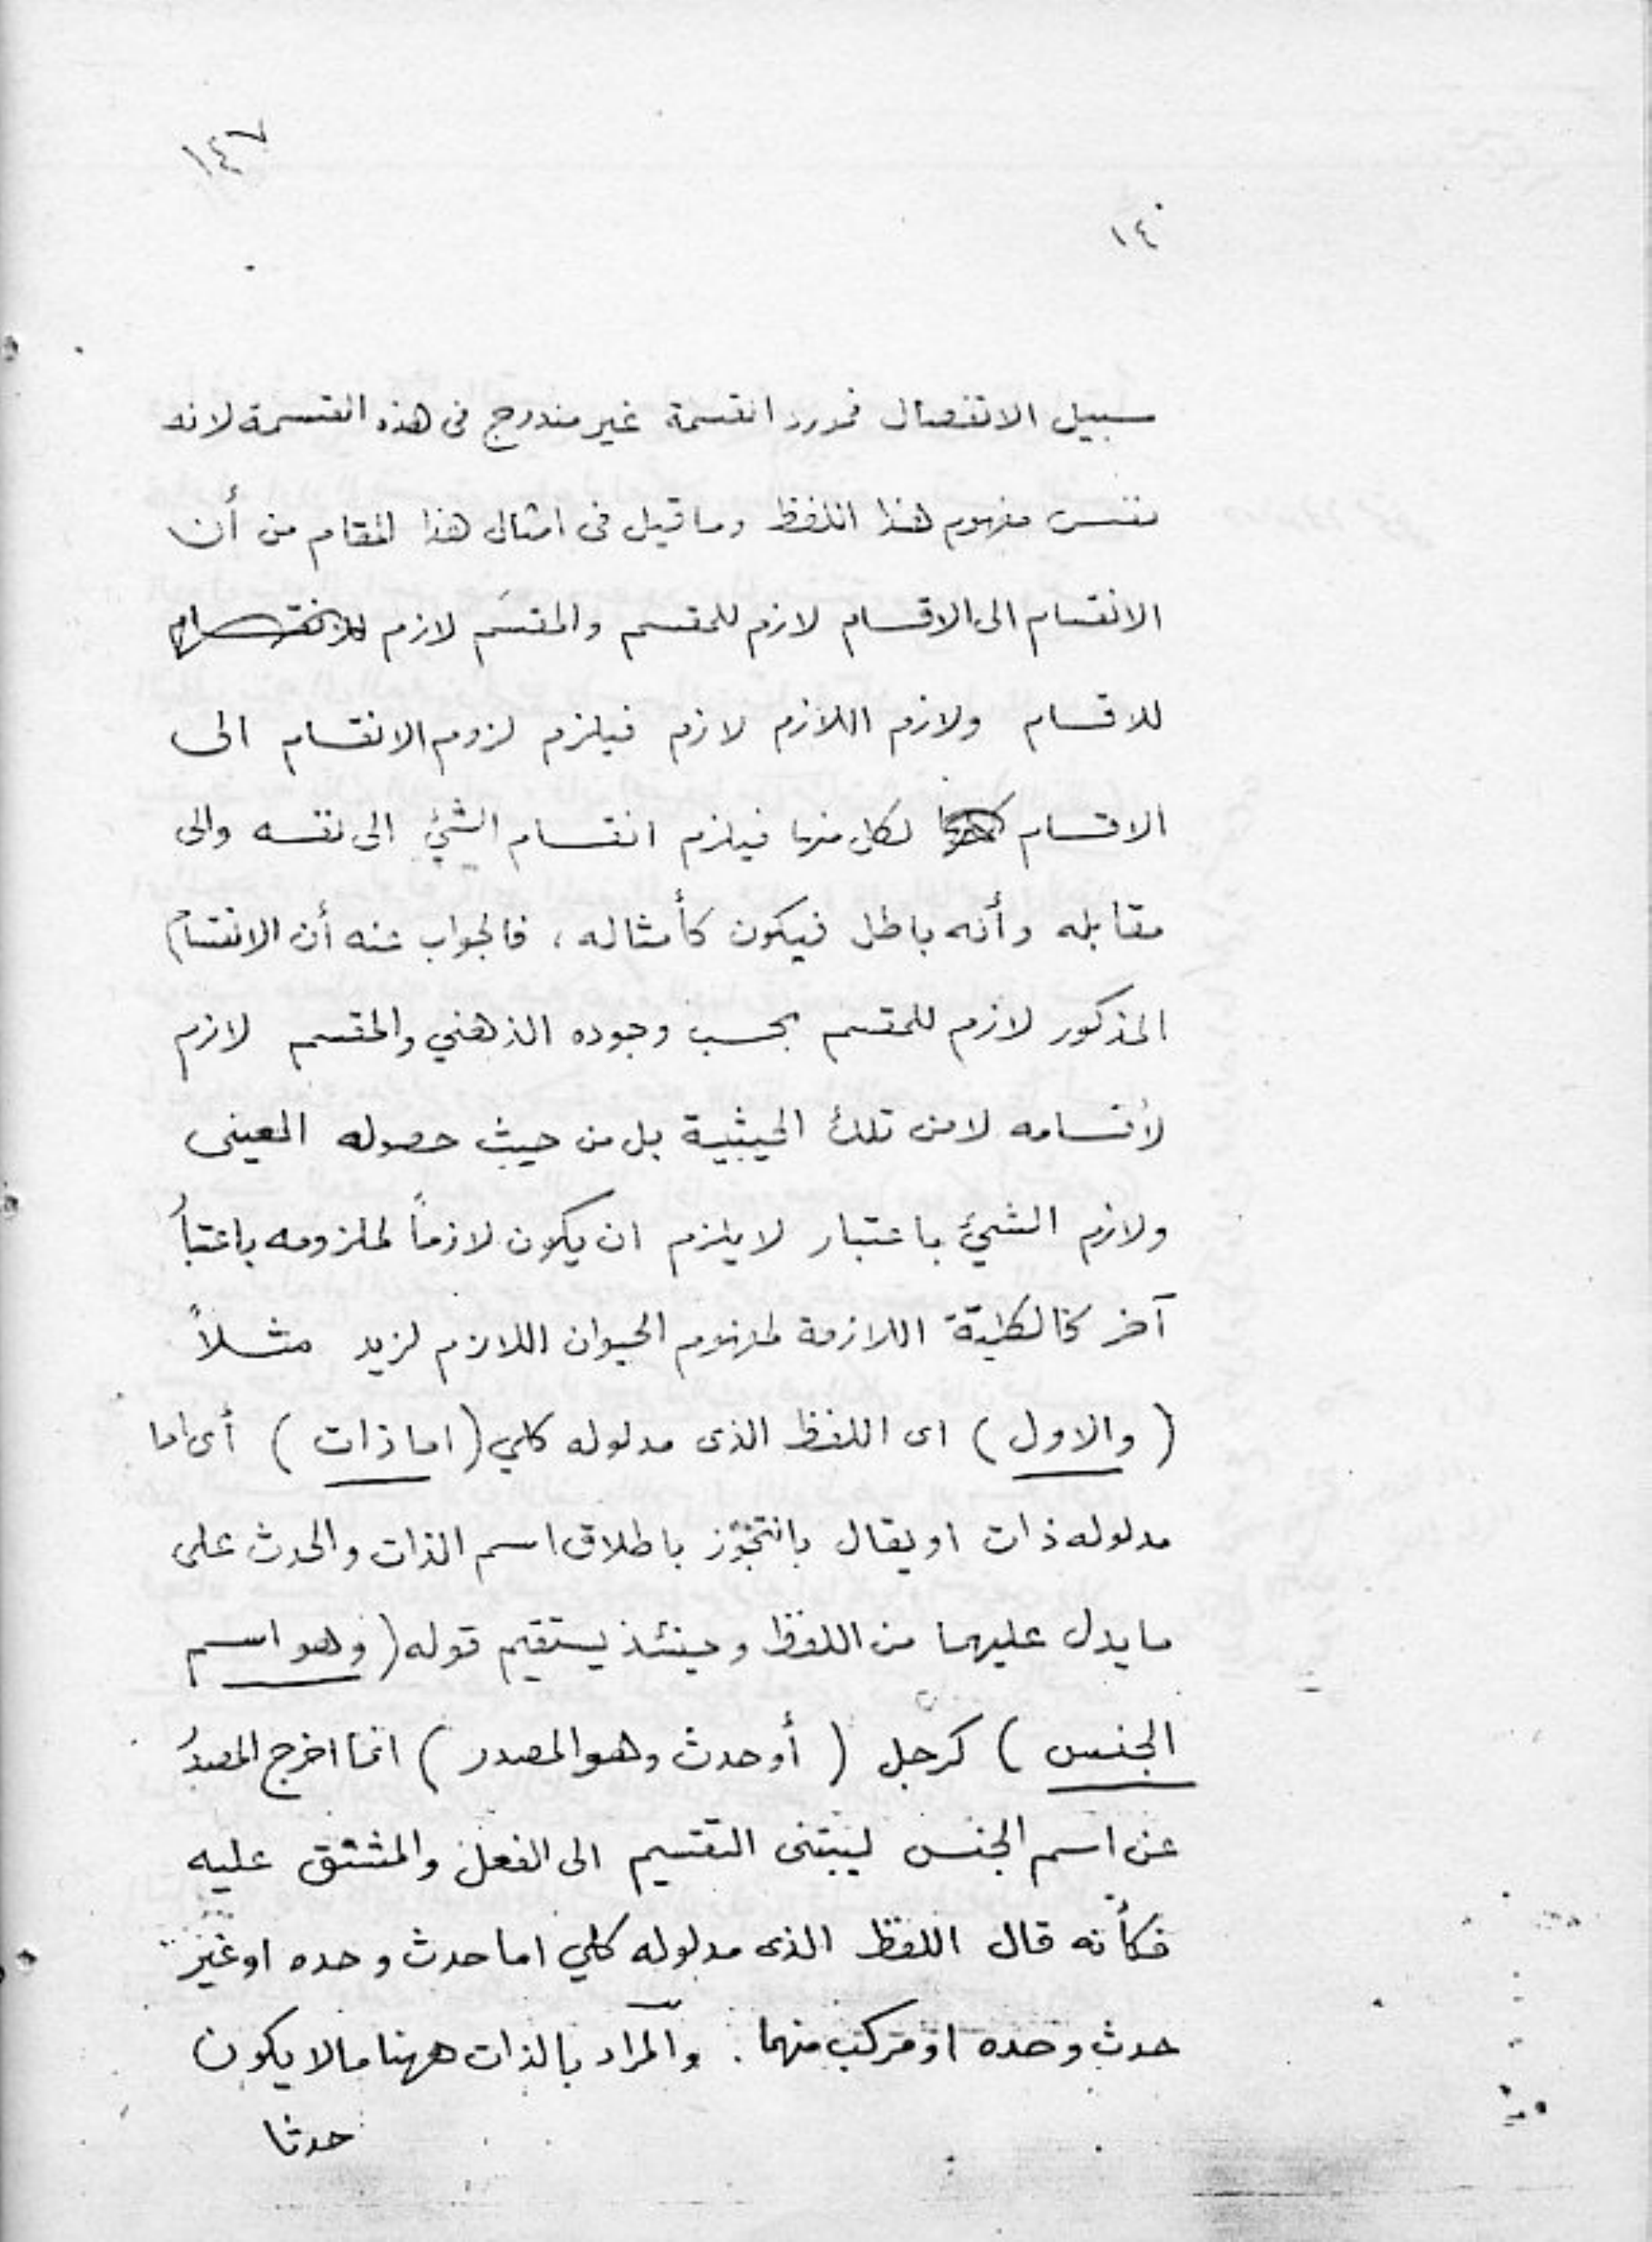 ١٤٧
١٤٠
سبيل الانفصال فمورد القسمة غير مندرج فى هذه القسمة لانه
نفس مفهوم هذا اللفظ وما قيل فى امثال هذا المقام من أن
الانقسام الى الاقسام لازم للمقسم والمقسَم لازم
للاقسام ولازم اللازم لازم فيلزم لزوم الانقسام الى
الاقسام لكل منها فيلزم انقسام الشيئ الى نفسه والى
مقابله وأنه باطل فيكون كأمثاله، فالجواب عنه أن الانقسام
المذكور لازم للمقسم بحسب وجوده الذهني والمقسم لازم
لأقسامه لا من تلك الحيثية بل من حيث حصوله العينى
ولازم الشيئ باعتبار لا يلزم ان يكون لازماً لملزومه باعتبار
آخر كالكلية اللازمة لمفهوم الحيوان اللازم لزيد مثلاً
(والاول) اى اللفظ الذى مدلوله كلي (اما ذات) أى اما
مدلوله ذات او يقال بالتجوّز باطلاق اسم الذات والحدث على
ما يدل عليهما من اللفظ وحينئذ يستقيم قوله (وهو اسم
الجنس) كرجل (أو حدث وهو المصدر) انما اخرج المصدر
عن اسم الجنس ليبتنى التقسيم الى الفعل والمشتق عليه
فكأنه قال اللفظ الذى مدلوله كلي اما حدث وحده او غير
حدث وحده او مركب منهما. والمراد بالذات ههنا ما لا يكون
حدثا